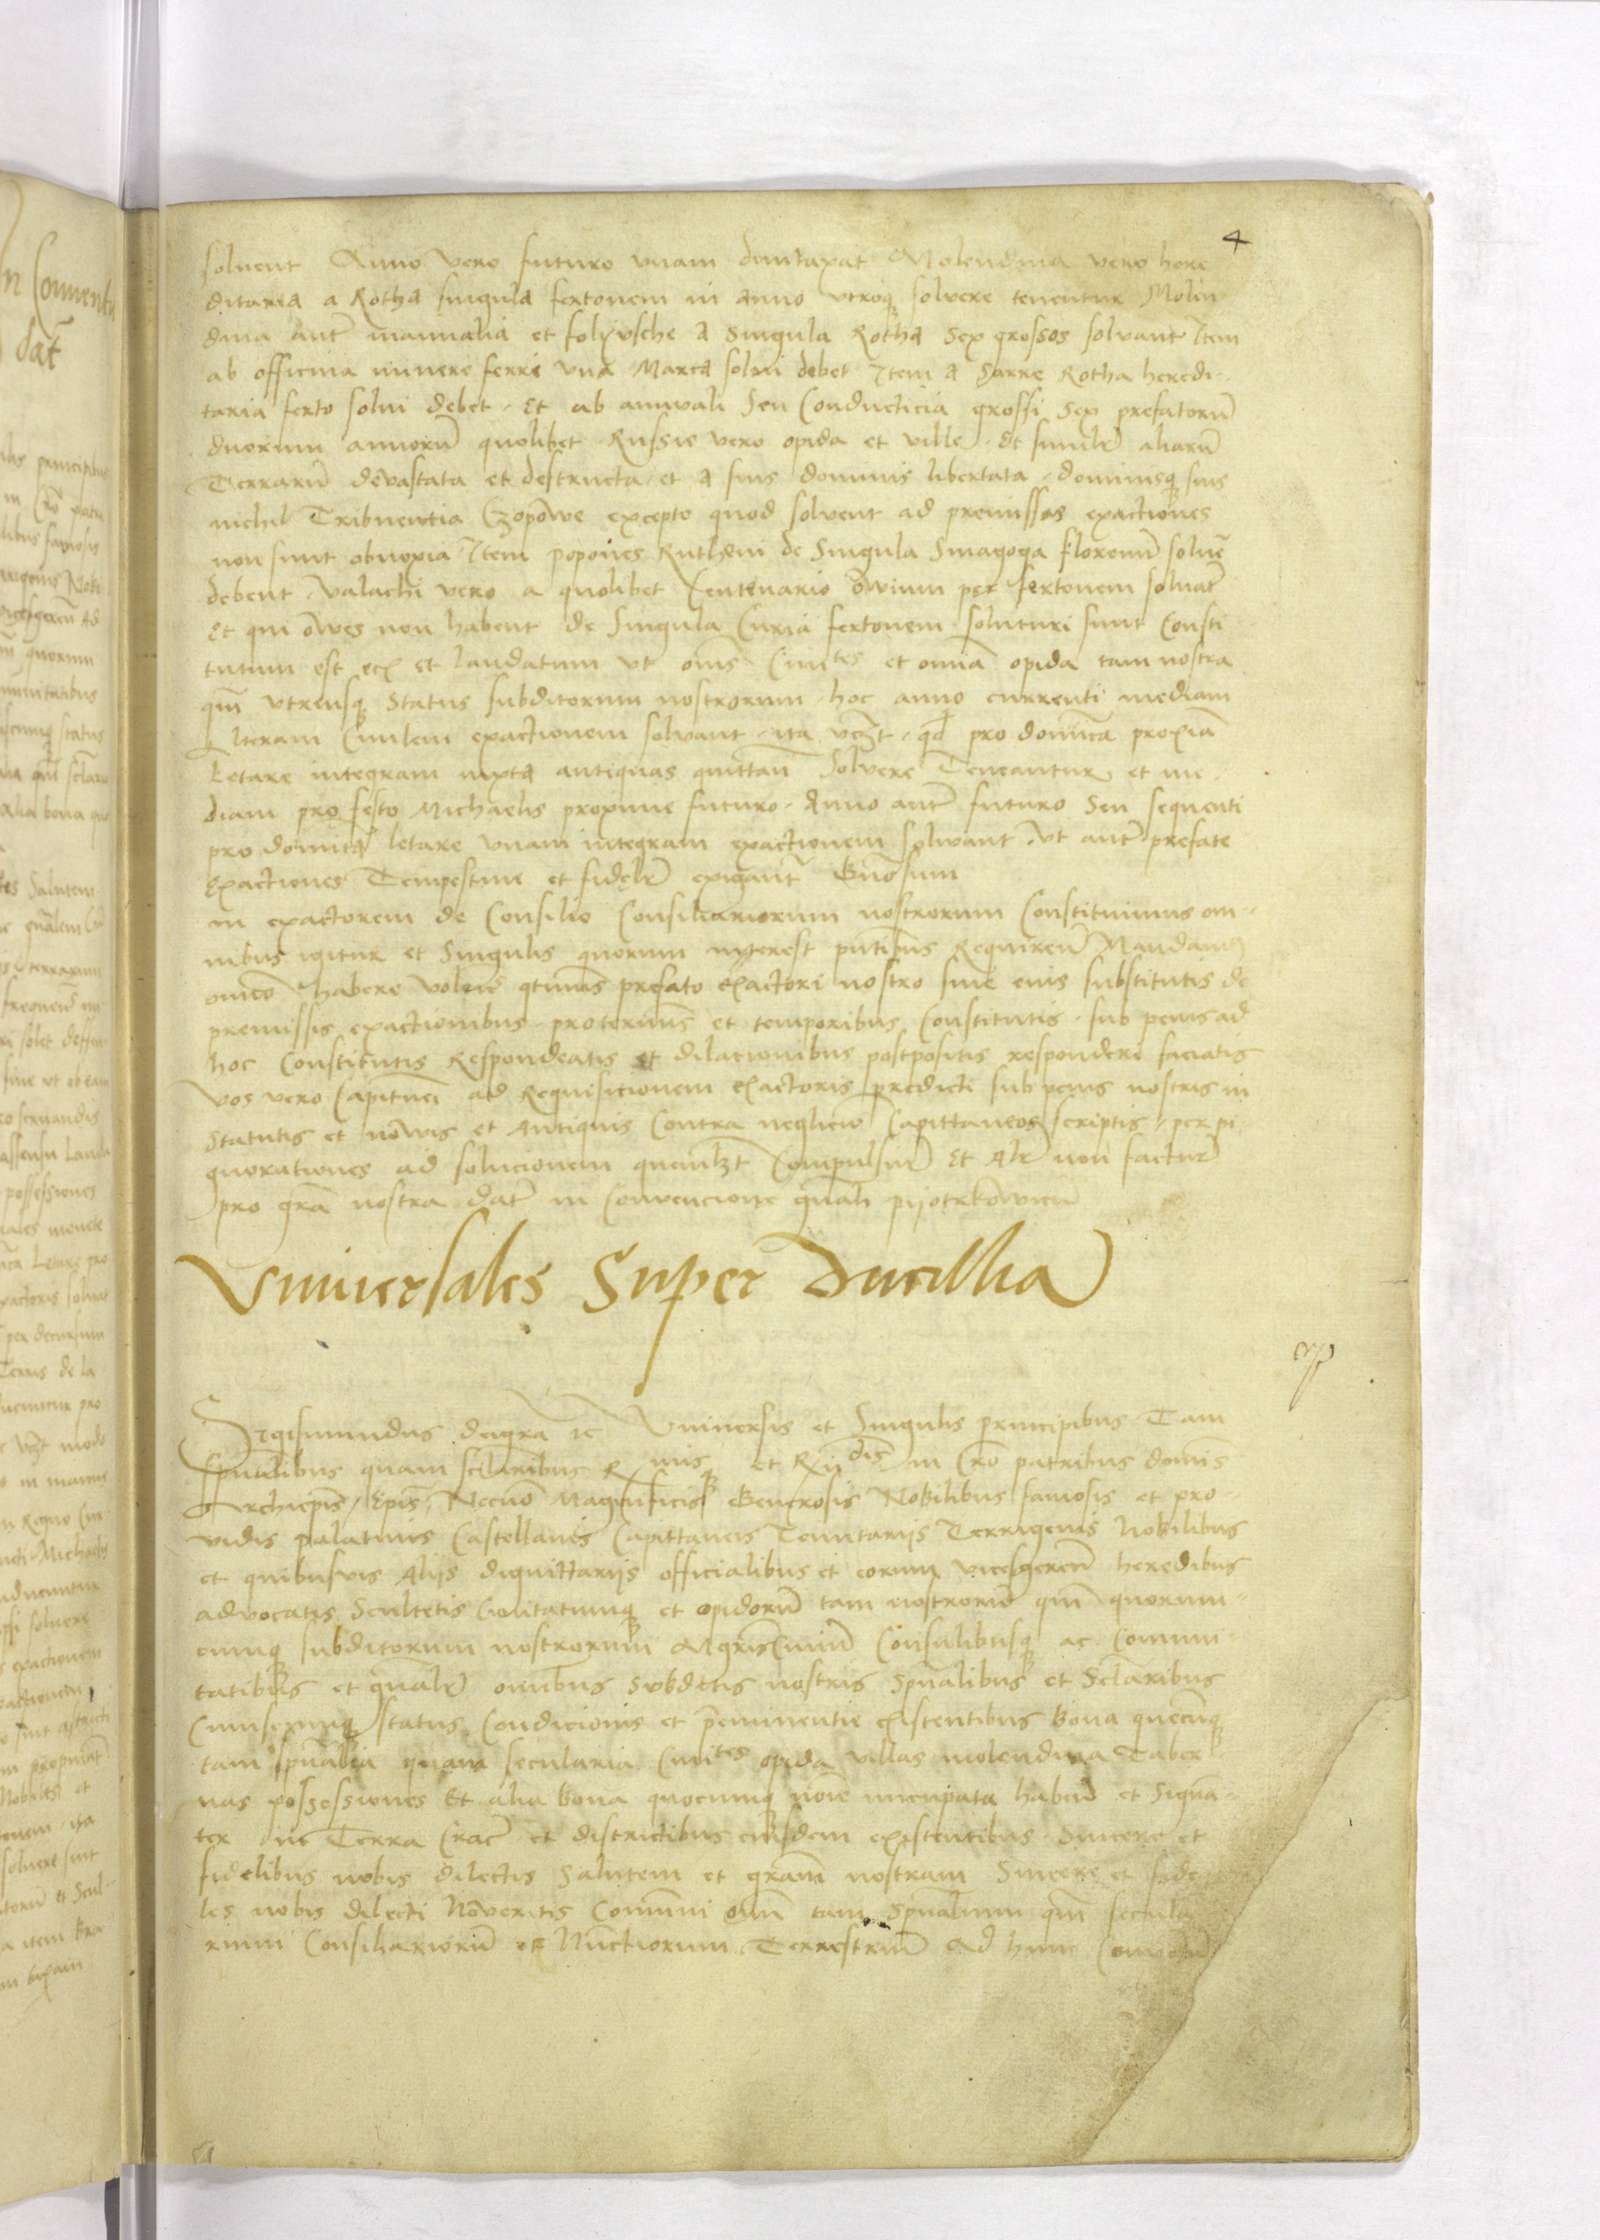 4
soluent Anno vero futuro vnam dumtaxat Molendina vero here
ditaria a Rotha singula fertonem in anno vtroq solvere tenentur Molen
dina aut mannalia et solivsche A singula Rotha Sex grossos solvant Item
ab officina minere ferri vna Marca solui debet Item A Serre Rotha heredi
taria ferto solui debet Et ab annuali Seu Conducticia grossi Sex prefatorū
duorum annorū quolibet Russie vero opida et ville Et similr aliarū
Terrarū devastata et destructa et A suis dominis libertata dominisq suis
nichil Tribuentia Czopowe excepto quod solvent ad premissas exactiones
non sunt obnoxia Item popones Rutheni de Singula Sinagoga florenū soluē
debent Valachi vero a quolibet Centenario Owium per fertonem soluāt
Et qui owes non habent de Singula Curia fertonem soluturi sunt Consti
tutum est et laudatum vt oms Ciuites et omnia opida tam nostra
qm vtreusq Status subditorum nostrorum hoc anno currenti mediam
alteram Ciuilem exactionem solvant ita vczt qd pro dominica proxia
Letare integram iuxta antiquas quittan Solvere Teneantur et me
diam pro festo Michaelis proxime futuro Anno aut futuro Seu sequenti
pro dominica letare vnam integram exactionem solvant vt aut prefate
Exactiones Tempestiue et fidelr exigant Gnosum
in exactorem de Consilio Consiliariorum nostrorum Constituimus om
nibus igitur et Singulis quorum interest pntibus Requiren Mandam
omo habere volen qtnus prefato exactori nostro siue eius substitutis de
premissis exactionibus pro terminis et temporibus Constitutis sub penis ad
hoc Constitutis Respondeatis et dilacionibus postpositis responderi faciatis
vos vero Capitnei ad Requisicionem exactoris predicti sub penis nostris in
Statutis et nowis et Antiquis Contra neglicen Capittaneos scriptis per pi
gnorationes ad solucionem quemlzt Compulsuri Et Alr non factur
pro gra nostra dat in Convencione gnali pijotrkowien
Vniuersales Super Ducillia
Sigismundus dei gra &c Vniuersis et Singulis principibus Tam
spualibus quam sclaribus R mis et Rndis in Cro patribus dominis
Archiepis Epis Necno Magnificis Generosis Nobilibus famosis et pro
vidis palatinis Castellanis Capittaneis Tenutarijs Terrigenis Nobilibus
et quibusvis Alijs dignittarijs officialibus et eorum vicesgeren heredibus
advocatis Scultetis Civitatumq et opidorū tam nostrorū qm quorum
cumq subditorum nostrorum Mgris Ciuiu Consulibusq ac Commu
tatibus et gnalr omnibus subditis nostris Spualibus et Sclaribus
Cuiuscumq status Condicionis et preminentie existentibus bona quecumq
tam spualia quam secularia Ciuites opida villas molendina Taber
nas possessiones Et alia bona quocumq noie nuncupata haben et Signa
ter in Terra Crac et districtibus eiusdem existentibus Sincere et
fidelibus nobis dilectis Salutem et gram nostram Sincere et fide
les nobis dilecti Noveritis Communi omn tam Spualium qm secula
rium Consiliariorū et Nunctiorum Terrestriū Ad hunc Conventū